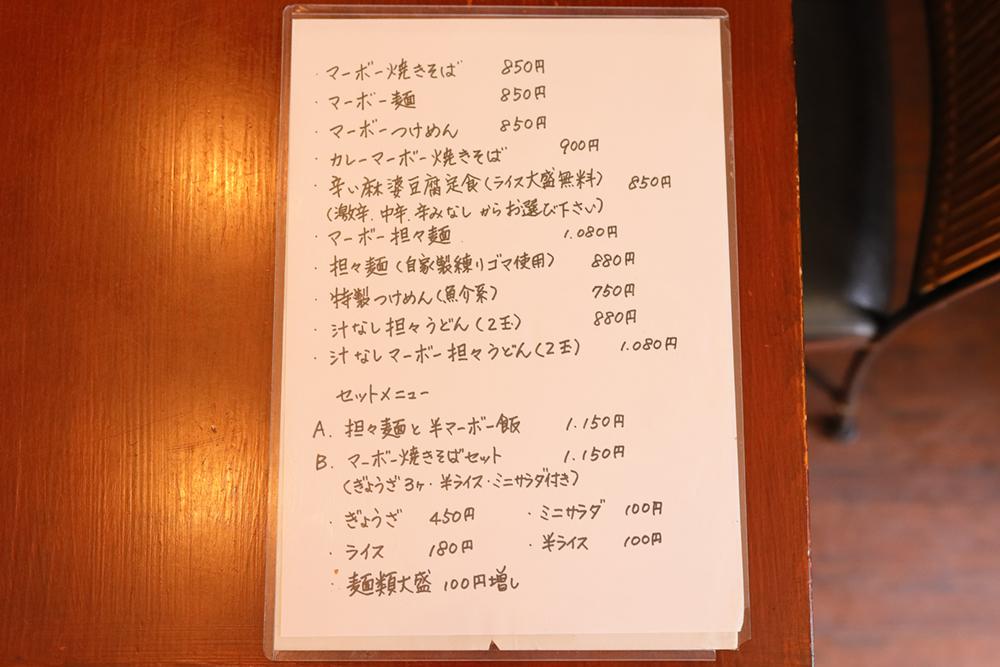 ・マーボー焼きそば 850円
・マーボー麺 850円
・マーボーつけめん 850円
・カレーマーボー焼きそば 900円
・辛い麻婆豆腐定食(ライス大盛無料) 850円
(激辛.中辛.辛みなしからお選び下さい)
・マーボー担々麺 1.080円
・担々麺(自家製練りゴマ使用) 880円
・特製つけめん(魚介系) 750円
・汁なし担々うどん(2玉) 880円
・汁なしマーボー担々うどん(2玉) 1.080円
セットメニュー
A. 担々麺と半マーボー飯 1.150円
B. マーボー焼きそばセット 1.150円
(ぎょうざ3ヶ・半ライス・ミニサラダ付き)
・ぎょうざ 450円 ・ミニサラダ 100円
・ライス 180円 ・半ライス 100円
・麺類大盛 100円増し